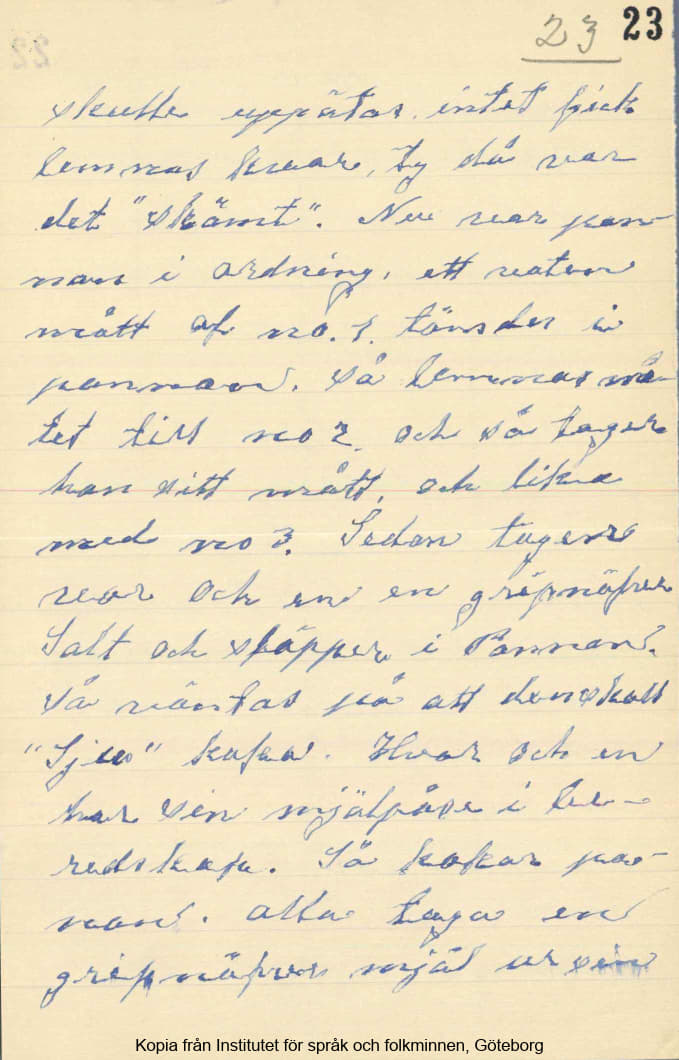 23 23
skulle uppätas, intet fick
lemnas kvar, ty då var
det "skämt". Nu var pan-
nan i ordning, ett vatten
mått af no. 1. tömdes i
pannan. Så lemnas må-
tet till no 2. och så tager
han sitt mått, och lika
med no 3. Sedan tager
var och en en gripnäfve
Salt och släpper i Pannan.
Så väntas på att den skall
"Sju" koka. Hvar och en
har sin mjölpåse i be-
redskap. Så kokar pa-
nan. Alla taga en
gripnäfve mjöl ur sin
Kopia från Institutet för språk och folkminnen, Göteborg